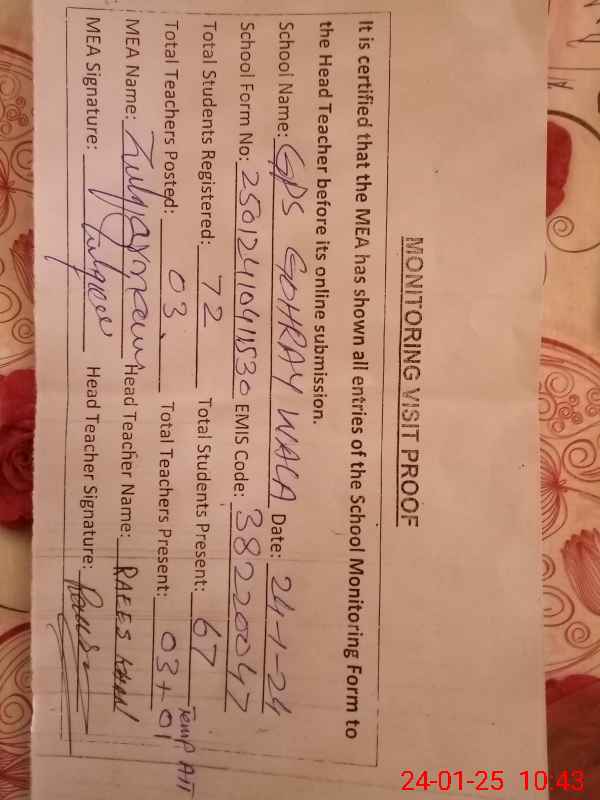 MONITORING VISIT PROOF
It is certified that the MEA has shown all entries of the School Monitoring Form to
the Head Teacher before its online submission.
School Name: GPS GOHRAY WALA Date: 24-1-24
School Form No: 2501241041530 EMIS Code: 38220047
Total Students Registered: 72 Total Students Present: 67
Total Teachers Posted: 03 Total Teachers Present: 03+01 Temp Att
MEA Name: Head Teacher Name: RAEES Khan
MEA Signature: Head Teacher Signature:
24-01-25 10:43